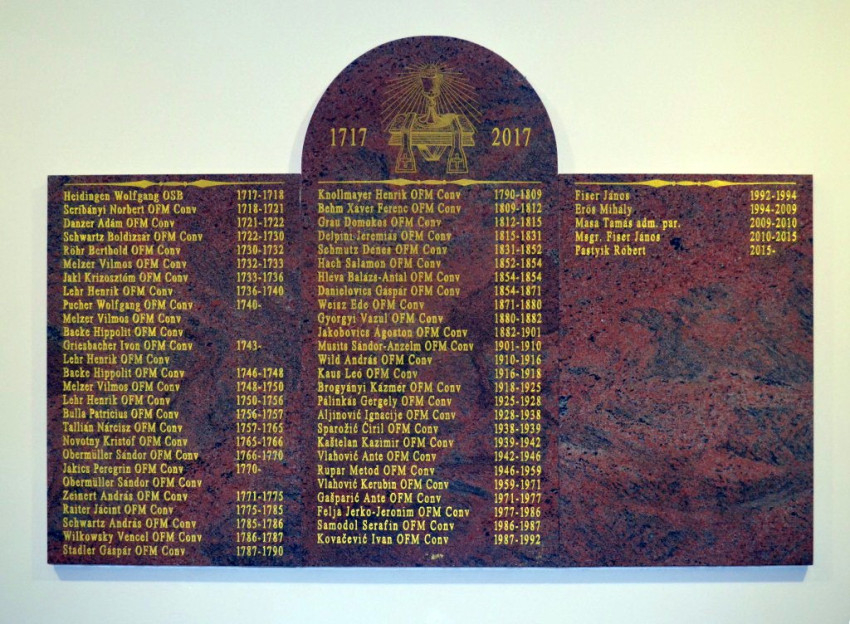 1717 2017
Heidingen Wolfgang OSB 1717-1718
Scribányi Norbert OFM Conv 1718-1721
Danzer Adám OFM Conv 1721-1722
Schwartz Boldizsár OFM Conv 1722-1730
Röhr Berthold OFM Conv 1730-1732
Melzer Vilmos OFM Conv 1732-1733
Jakl Krizosztóm OFM Conv 1733-1736
Lehr Henrik OFM Conv 1736-1740
Pucher Wolfgang OFM Conv 1740-
Melzer Vilmos OFM Conv
Backe Hippolit OFM Conv
Griesbacher Ivon OFM Conv 1743-
Lehr Henrik OFM Conv
Backe Hippolit OFM Conv 1746-1748
Melzer Vilmos OFM Conv 1748-1750
Lehr Henrik OFM Conv 1750-1756
Bulla Patricius OFM Conv 1756-1757
Tallián Nárcisz OFM Conv 1757-1765
Novotny Kristóf OFM Conv 1765-1766
Obermüller Sándor OFM Conv 1766-1770
Jakics Peregrin OFM Conv 1770-
Obermüller Sándor OFM Conv
Zeinert András OFM Conv 1771-1775
Raiter Jácint OFM Conv 1775-1785
Schwartz András OFM Conv 1785-1786
Wilkowsky Vencel OFM Conv 1786-1787
Stadler Gáspár OFM Conv 1787-1790
Knollmayer Henrik OFM Conv 1790-1809
Behm Xáver Ferenc OFM Conv 1809-1812
Grau Domokos OFM Conv 1812-1815
Delpini Jeremiás OFM Conv 1815-1831
Schmutz Dénes OFM Conv 1831-1852
Hach Salamon OFM Conv 1852-1854
Hléva Balázs-Antal OFM Conv 1854-1854
Danielovics Gáspár OFM Conv 1854-1871
Weisz Ede OFM Conv 1871-1880
Györgyi Vazul OFM Conv 1880-1882
Jakobovics Ágoston OFM Conv 1882-1901
Musits Sándor-Anzelm OFM Conv 1901-1910
Wild András OFM Conv 1910-1916
Kaus Leó OFM Conv 1916-1918
Brogyányi Kázmér OFM Conv 1918-1925
Pálinkás Gergely OFM Conv 1925-1928
Aljinović Ignacije OFM Conv 1928-1938
Sparožić Ćiril OFM Conv 1938-1939
Kaštelan Kazimir OFM Conv 1939-1942
Vlahović Ante OFM Conv 1942-1946
Rupar Metod OFM Conv 1946-1959
Vlahović Kerubin OFM Conv 1959-1971
Gašparić Ante OFM Conv 1971-1977
Felja Jerko-Jeronim OFM Conv 1977-1986
Samodol Serafin OFM Conv 1986-1987
Kovačević Ivan OFM Conv 1987-1992
Fiser János 1992-1994
Erős Mihály 1994-2009
Masa Tamás adm. par. 2009-2010
Msgr. Fiser János 2010-2015
Pastyik Róbert 2015-